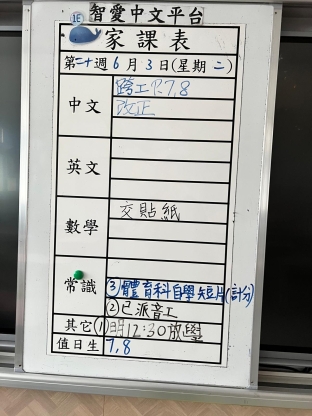 智愛中文平台
1E
家課表
第二十週6月3日(星期二)
中文
跨工P.7,8
改正
英文
數學
交貼紙
常識
③體育科自學短片(計分)
②已派音工
其它(1)明12:30放學
值日生 7,8